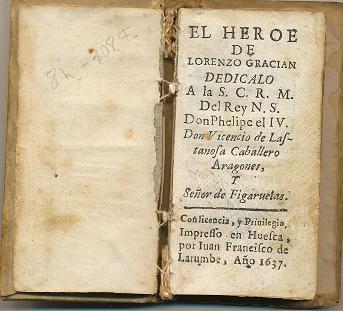 EL HEROE
DE
LORENZO GRACIAN
DEDICALO
A la S. C. R. M.
Del Rey N. S.
Don Phelipe el IV.
Don Vicencio de Laſ-
tanoſa Caballero
Aragones,
Y
Señor de Figaruelas.
Con licencia, y Priuilegio,
Impreſſo en Hueſca,
por Iuan Franciſco de
Larumbe, Año 1637.